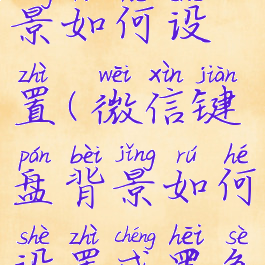 景如何设
zhì wēi xìn jiàn
置(微信键
pán bèi jǐng rú hé
盘背景如何
shè zhì chéng hēi sè
设置成黑色